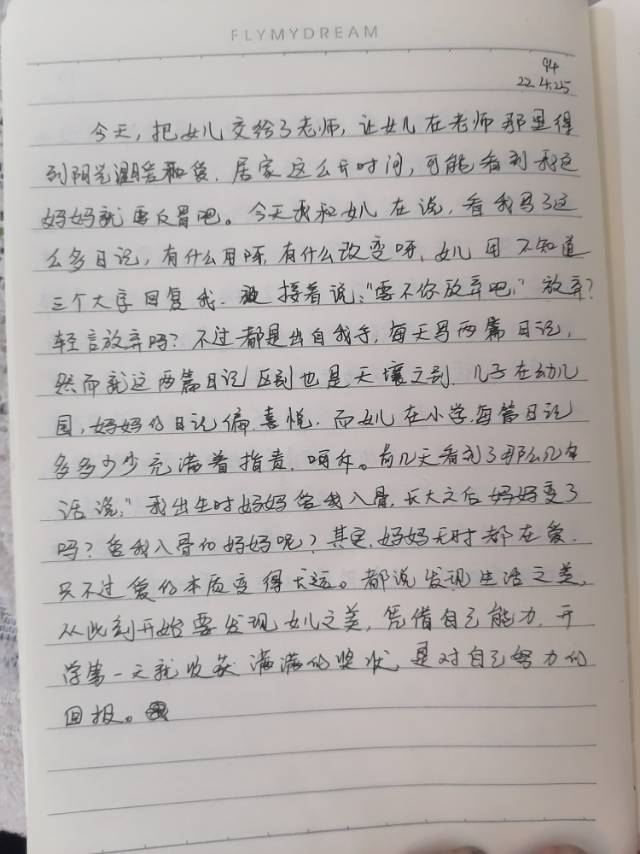 FLYMYDREAM
94
22.4.25
今天,把女儿交给了老师,让女儿在老师那里得
到阳光温暖和爱。居家这么开时间,可能看到我这
妈妈就要反胃吧。今天我和女儿在说,看我写了这
么多日记,有什么用陈,有什么改变呀,女儿用不知道
三个大字回复我。接着说:"要不你放弃吧。"放弃?
轻言放弃吗?不过都是出自我手,每天写两篇日记,
然而就这两篇日记区别也是天壤之别。儿子在幼儿
园,妈妈的日记偏喜悦,而女儿在小学,每篇日记
多多少少充满着指责,呵斥。前几天看到了那么几句
话说,"我出生时妈妈爱我入骨,长大之后妈妈变了
吗?爱我入骨的妈妈呢?其实,妈妈无时都在爱,
只不过爱的本质变得长远。都说发现生活之美,
从此刻开始要发现女儿之美,凭借自己能力,开
学第一天就收获满满的奖状,是对自己努力的
回报。